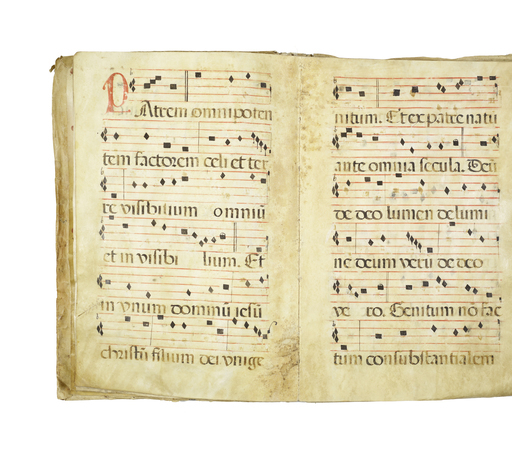 PAtrem omnipoten
tem factorem celi et ter
re visibilium omniū
et in visibi lium. Et
in vnum dominū iesū
christū filium dei vnige
nitum. Et ex patre natū
ante omnia secula. Deū
de deo lumen de lumi
ne deum verū de deo
ve ro. Genitum nō fac
tum consubstantialem